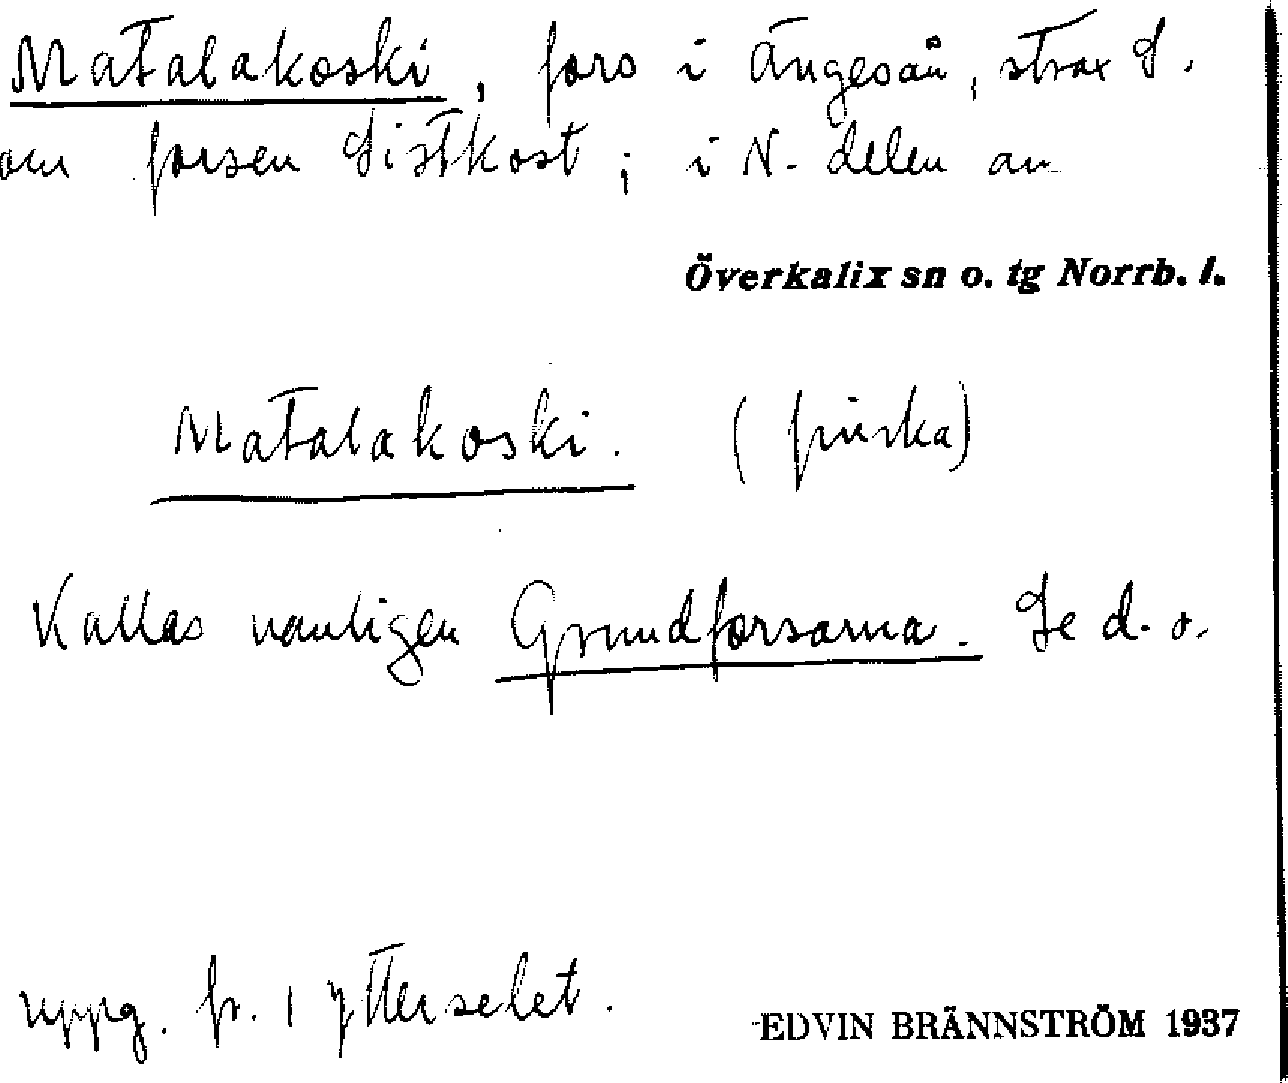 Matalakoski, fors i Ängesån, strax S.
om forsen Sistkost; i N. delen av
Överkalix sn o. tg Norrb. l.
Matalakoski. (finska)
Kallas vanligen Grundforsarna. Se d. o.
uppg. fr. i Ytterselet.
EDVIN BRÄNNSTRÖM 1937